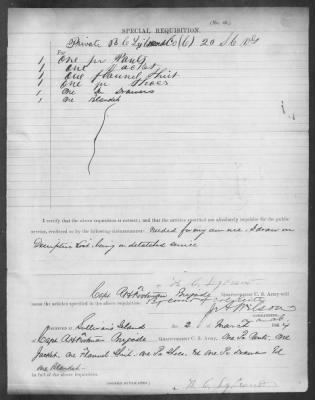 (No. 40.)
SPECIAL REQUISITION.
Private B. C. (6) 20 S.C.
For
1 One pr Pants
1 one Jacket
1 One Flannel Shirt
1 One pr Shoes
1 One pr Drawers
1 One Blanket
I certify that the above requisition is correct; and that the articles specified are absolutely requisite for the public
service, rendered so by the following circumstances: Needed for my own use. I draw on
Descriptive List, being on detatched service
Capt. Brigade Quartermaster C. S. Army will
issue the articles specified in the above requisition.
J A Wilson
COMMANDING.
RECEIVED at Sullivans Islands the 2 of March 1864
Capt. Brigade Quartermaster C. S. Army, One Pr Pants, One
Jacket, One Flannel Shirt, One Pr Shoes, One Pr Drawers &
One Blanket
in full of the above requisition.
(SIGNED DUPLICATES.)